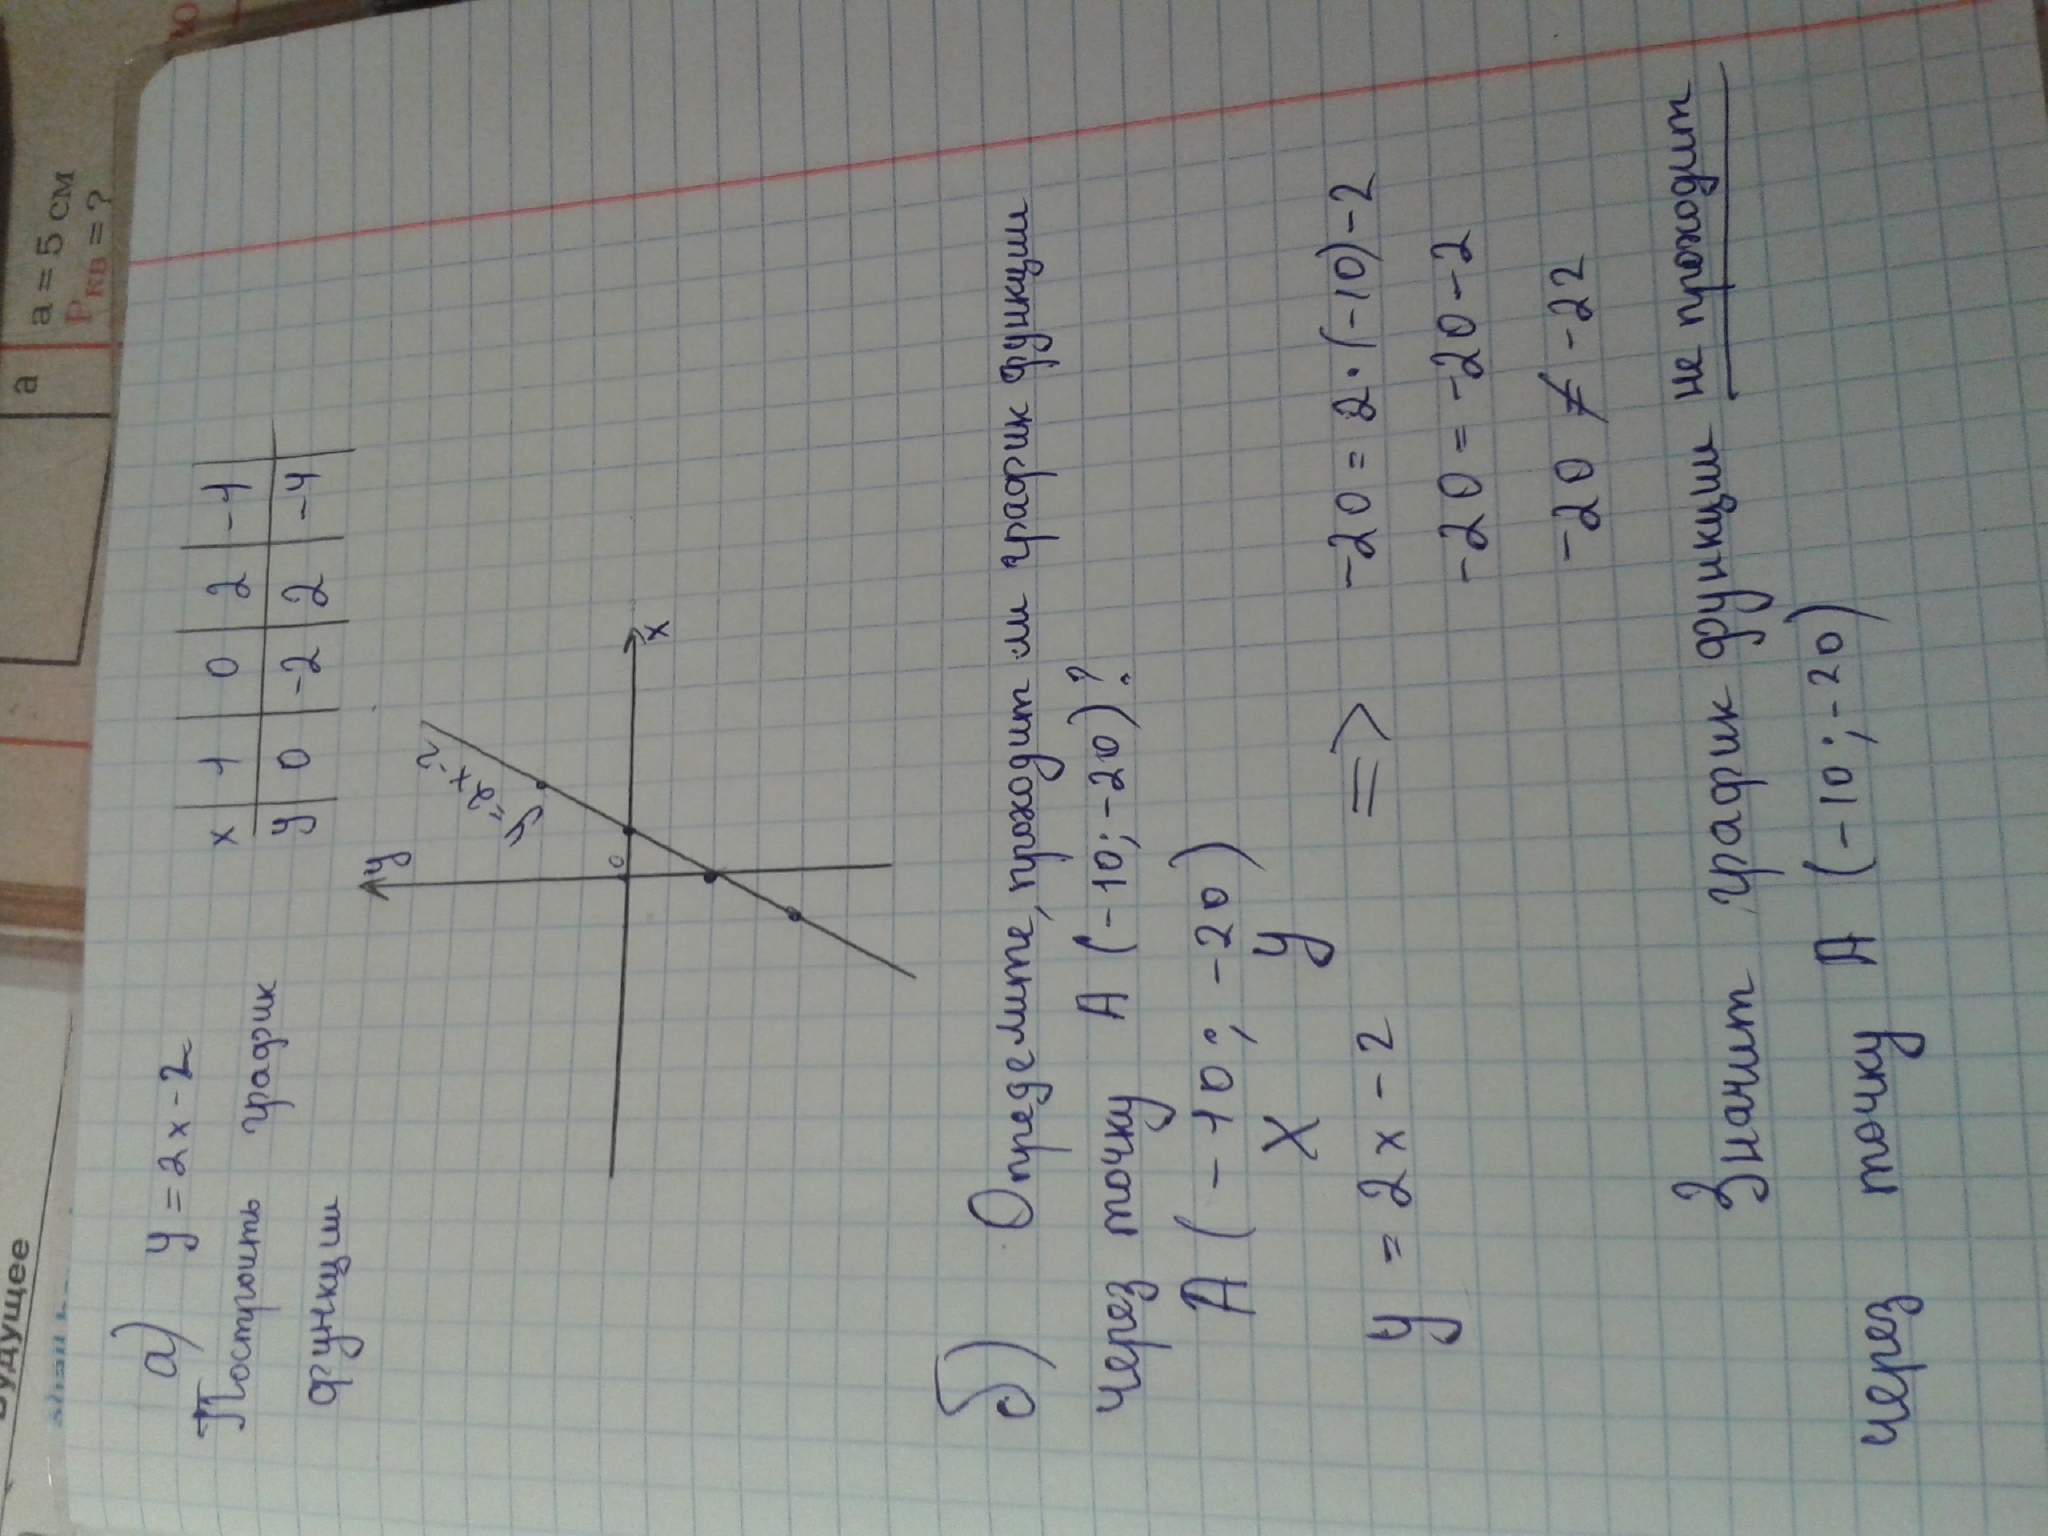 а) y = 2x - 2
Построить график
функции
x 1 0 2 -1
y 0 -2 2 -4
y
y=2x-2
0
x
б) Определите, проходит ли график функции
через точку А (-10; -20)?
А (-10; -20)
x y
y = 2x - 2 => -20 = 2·(-10)-2
-20 = -20-2
-20 ≠ -22
Значит график функции не проходит
через точку А (-10; -20)
будущее
а
а = 5 см
Pкв = ?